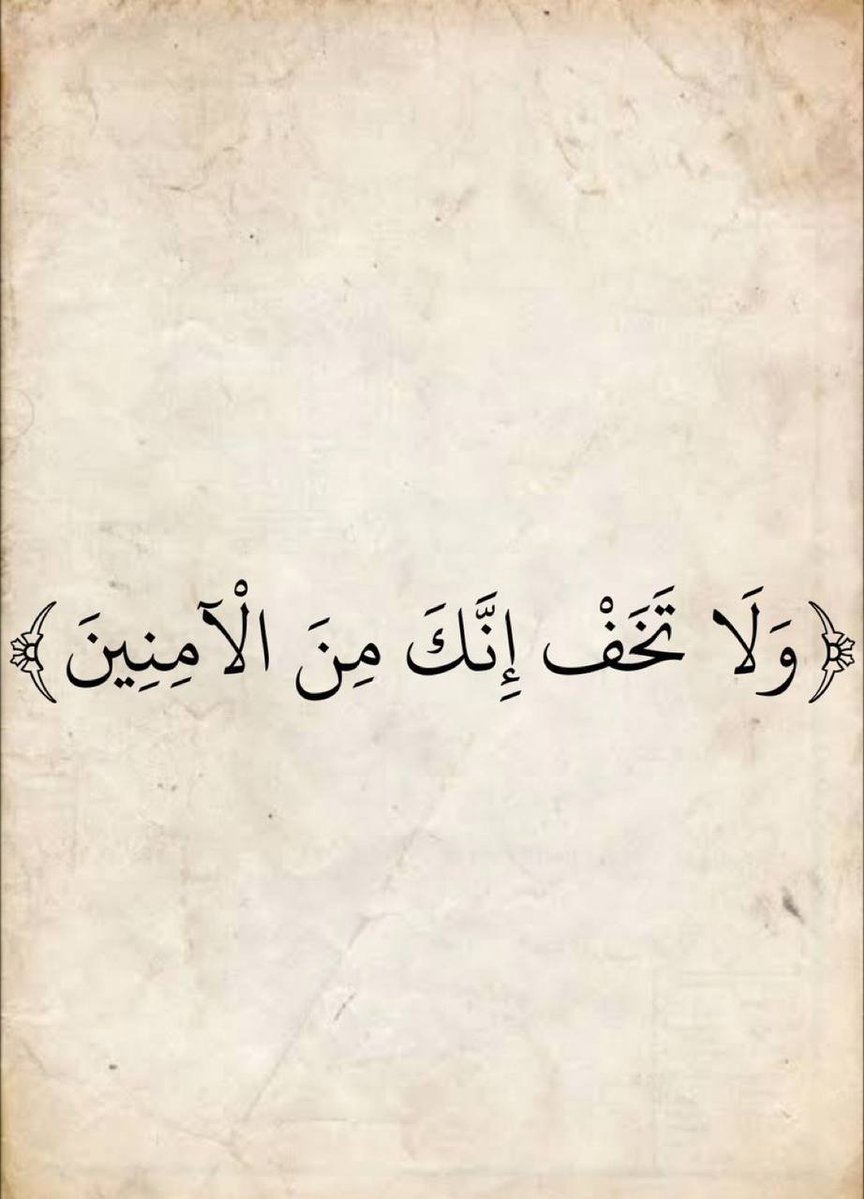 ﴿وَلَا تَخَفْ إِنَّكَ مِنَ الْآمِنِينَ﴾